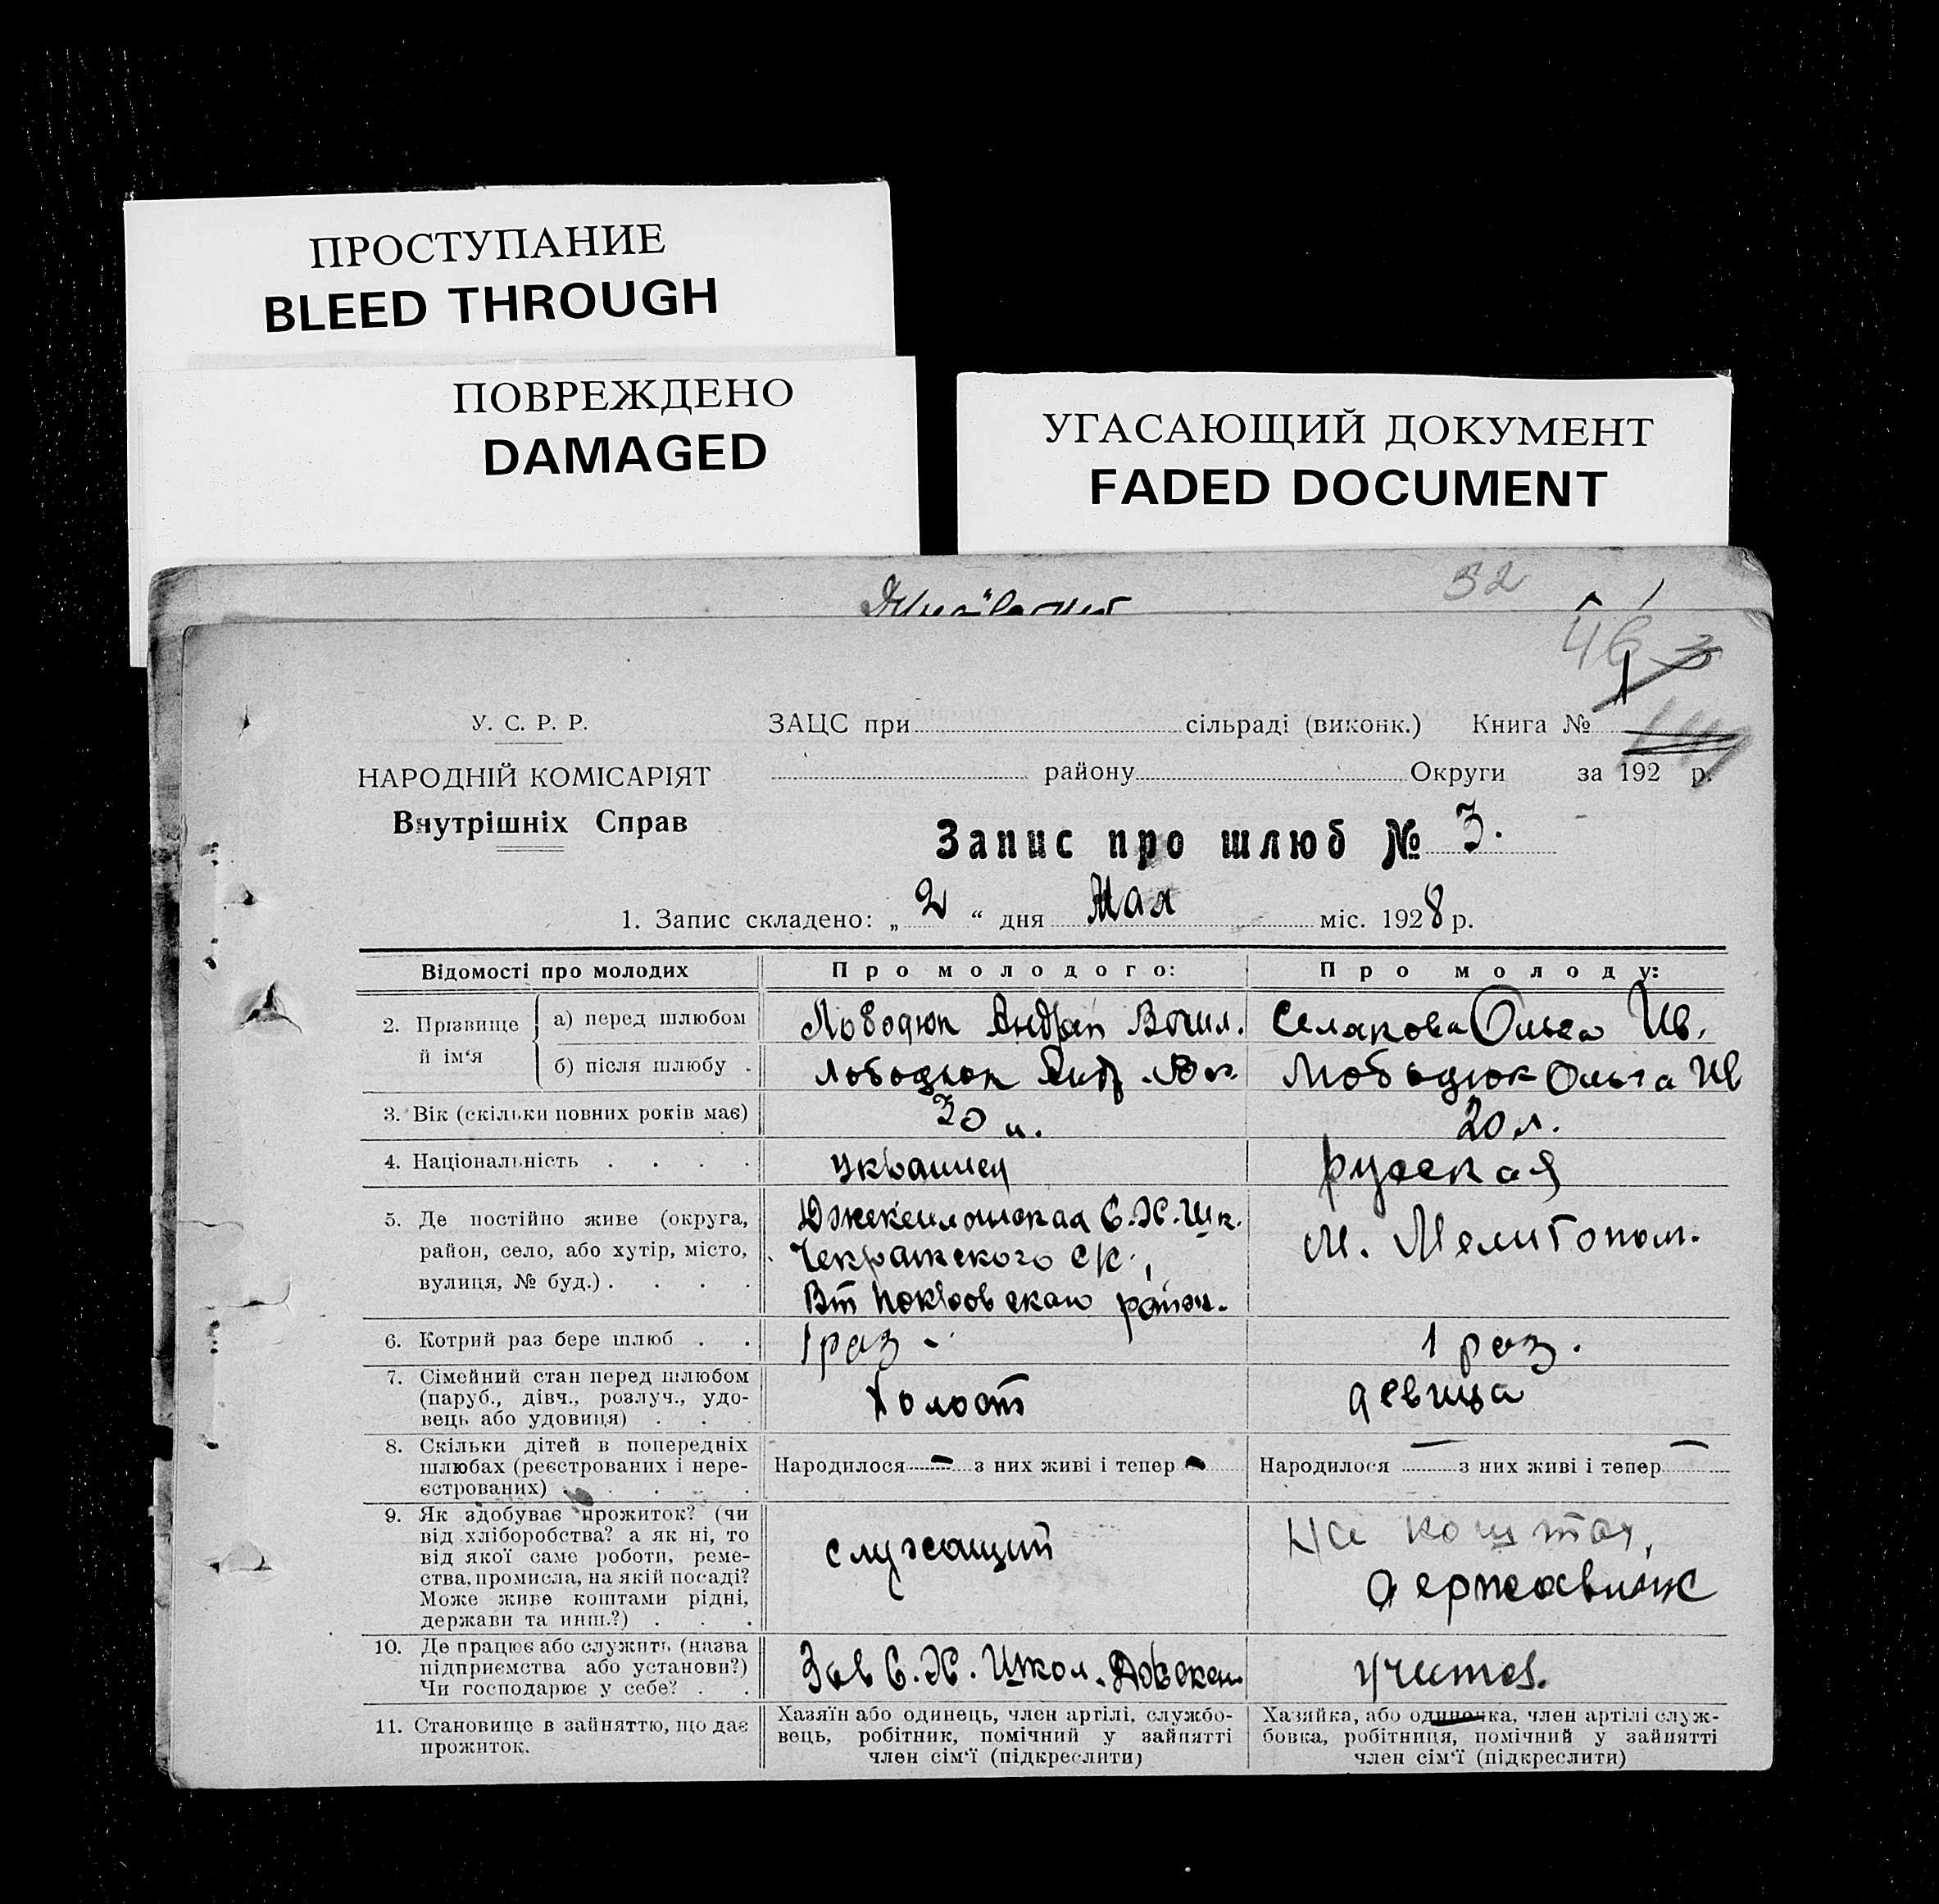 ПРОСТУПАНИЕ
BLEED THROUGH
ПОВРЕЖДЕНО
DAMAGED
УГАСАЮЩИЙ ДОКУМЕНТ
FADED DOCUMENT
32
46
У. С. Р. Р.
НАРОДНІЙ КОМІСАРІЯТ
Внутрішніх Справ
ЗАЦС при сільраді (виконк.) Книга №
району Округи за 192 р.
Запис про шлюб № 3.
1. Запис складено: „2“ дня Мая міс. 1928 р.
Відомості про молодих Про молодого: Про молоду:
2. Прізвище й ім‘я
а) перед шлюбом Лободюк Ольга Ив.
б) після шлюбу . Лободюк Лободюк Ольга Ив
3. Вік (скільки повних років має) 30 л. 20 л.
4. Національність . . . . украинец русская
5. Де постійно живе (округа, район, село, або хутір, місто, вулиця, № буд.) . . . .
С. Х. Шк.
с/с.,
Вт Покровскаго район.
М. Мелитополь.
6. Котрий раз бере шлюб . . 1 раз - 1 раз.
7. Сімейний стан перед шлюбом
(паруб., дівч., розлуч., удо-
вець або удовиця) . . .
холост девица
8. Скільки дітей в попередніх
шлюбах (реєстрованих і нере-
єстрованих) . . . . .
Народилося - з них живі і тепер -
Народилося — з них живі і тепер —
9. Як здобуває прожиток? (чи
від хліборобства? а як ні, то
від якої саме роботи, реме-
ства, промисла, на якій посаді?
Може живе коштами рідні,
держави та инш.?) . . .
служащий
На коштах
10. Де працює або служить (назва
підприємства або установи?)
Чи господарює у себе? . .
Зав С. Х. Школ.
11. Становище в зайняттю, що дає
прожиток.
Хазяїн або одинець, член артілі, службо-
вець, робітник, помічний у зайнятті
член сім‘ї (підкреслити)
Хазяйка, або одиночка, член артілі служ-
бовка, робітниця, помічний у зайнятті
член сім‘ї (підкреслити)